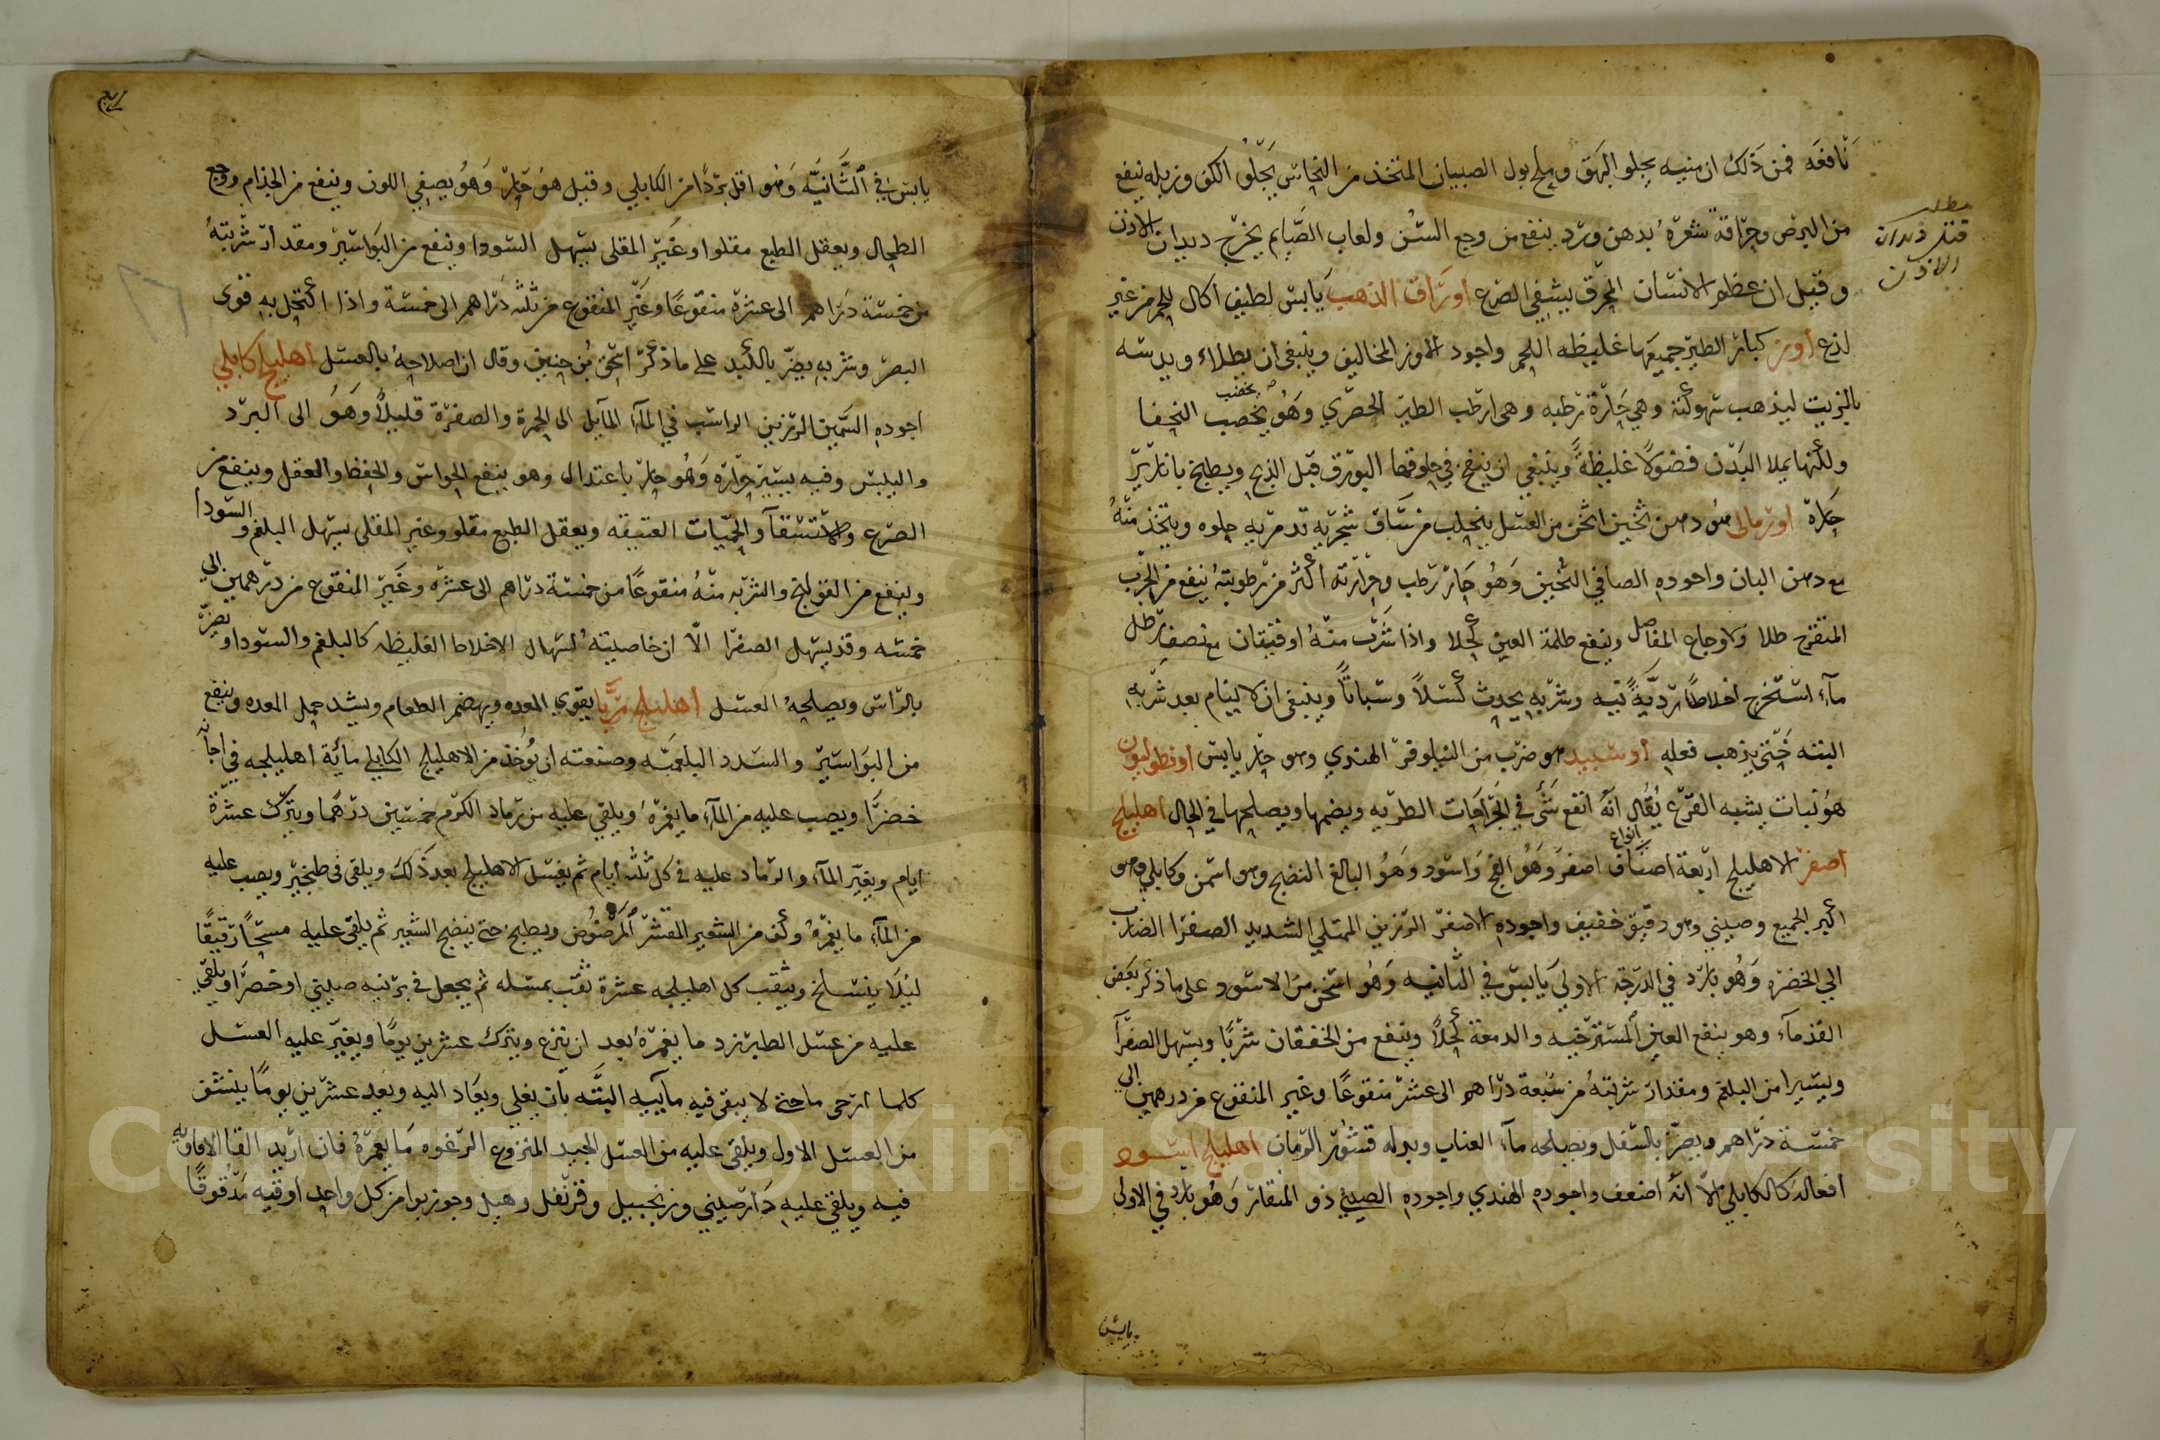 نافعه فمن ذلك ان منيه يجلو البهق وملح بول الصبيان المتخذ من النحاس يجلو الكلف وزبله ينفع
من البرص وحراقة شعره بدهن ورد ينفع من وجع السن ولعاب الصايم يخرج ديدان الاذن
مطلب
قتل ديدان
الاذن
وقيل ان عظم الانسان المحرق يشفي الصرع اوراق الذهب يابس لطيف اكال للحم من غير
لذع اوز كبار الطير جميعها غليظه اللحم واجود الاوز المخاليف وينبغي ان يطلاء ويدسه
بالزيت ليذهب سهوكته وهي حارة رطبه وهي ارطب الطير الحضري وهو يخصب النحفا
يخصب
ولكنها يملا البدن فضولا غليظة وينبغي ان ينفخ في حلوقها البورق قبل الذبح ويطبخ بابازير
حارة اومالى هو دهن ثخين اثخن من العسل يتحلب من ساق شجرة تدمرية حلوه ويتخذ منه
مع دهن البان واجوده الصافي الثخين وهو حار رطب وحرارته اكثر من رطوبته ينفع من الجرب
المتقرح طلا ولاوجاع المفاصل وينفع ظلمة العين كحلا واذا شرب منه اوقيتان مع نصف رطل
ماء استخرج اخلاطا ردية نيه وشربه يحدث كسلا وسباتا وينبغي ان لا ينام بعد شربه
البتة حتى يذهب فعله اوسبيد هو ضرب من النيلوفر الهندي وهو حار يابس اوفطوليون
هو نبات يشبه القرع يقال انه انفع شي في الجراحات الطريه ويضمها ويصلحها في الحال اهليلج
اصفر الاهليلج اربعة اصناف اصفر وهو الفج واسود وهو البالغ النضيج وهو اسمن وكابلي وهو
انواع
اكبر الجميع وصيني وهو دقيق خفيف واجوده الاصفر الرزين الممتلي الشديد الصفرا الضارب
الي الخضره وهو بارد في الدرجة الاولي يابس في الثانيه وهو اسخن من الاسود على ما ذكر بعض
القدماء وهو ينفع العين المسترخيه والدمعة كحلا وينفع من الخفقان شربا ويسهل الصفرآ
ويسيرا من البلغم ومقدار شربته من سبعة دراهم الى عشرة منقوعا وغير المنقوع من درهمين الي
خمسة دراهم ويضر بالسفل ويصلحه مآء العناب وبدله قشور الرمان اهليلج اسود
افعاله كالكابلي الا انه اضعف واجوده الهندي واجوده الصيني ذو المنقار وهو بارد في الاولى
يابس
يابس في الثانيه وهو اقل بردا من الكابلي وقيل هو حار وهو يصفي اللون وينفع من الجذام ووجع
الطحال ويعقل الطبع مقلوا وغير المقلى يسهل السودا وينفع من البواسير ومقدار شربته
من خمسة دراهم الى عشرة منقوعا وغير المنقوع من ثلثه دراهم الى خمسة واذا اكتحل به قوى
البصر وشربه يضر بالكبد على ما ذكر اسحق بن حنين وقال ان اصلاحه بالعسل اهليلج كابلي
اجوده السمين الرزين الراسب في المآء المايل الى الحمرة والصفرة قليلا وهو الى البرد
واليبس وفيه يسير حرارة وهو حار باعتدال وهو ينفع الحواس والحفظ والعقل وينفع من
الصرع والاستسقآ والحميات العتيقه ويعقل الطبع مقلو وغير المقلى يسهل البلغم والسودا
وينفع من القولنج والشربه منه منقوعا من خمسة دراهم الى عشرة وغير المنقوع من درهمين الي
خمسه وقد يسهل الصفرا الا ان خاصيته اسهال الاخلاط الغليظه كالبلغم والسودا ويضر
بالراس ويصلحه العسل اهليلج مربا يقوي المعده ويهضم الطعام ويشد حمل المعده وينفع
من البواسير والسدد البلغميه وصنعته ان يؤخذ من الاهليلج الكابلي ماية اهليلجه في اجانه
خضرا ويصب عليه من المآء ما يغمره ويلقي عليه من رماد الكرم خمسين درهما ويترك عشرة
ايام ويغير المآء والرماد عليه في كل ثلثه ايام ثم يغسل الاهليلج بعد ذلك ويلقى في طنجير ويصب عليه
من المآء ما يغمره وكف من الشعير المقشر المرضوض ويطبخ حتى ينضج الشعير ثم يلقى عليه مسحا رقيقا
ليلا ينسلخ ويثقب كل اهليلجه عشرة ثقب بمسله ثم يجعل في برنيه صيني او خضرا ويلقي
عليه من عسل الطبرزد ما يغمره بعد ان ينزع ويترك عشرين يوما ويغير عليه العسل
كلما ارخى ما حتى لا يبقى فيه مآييه البته بان يغلي ويعاد اليه وبعد عشرين يوما ينشف
من العسل الاول ويلقى عليه من العسل الجيد المنزوع الرغوه ما يغمره فان اريد القا الافاويه
فيه ويلقي عليه دارصيني وزنجبيل وقرنفل وهيل وجوزبوا من كل واحد اوقيه مدقوقا
Copyright © King Saud University